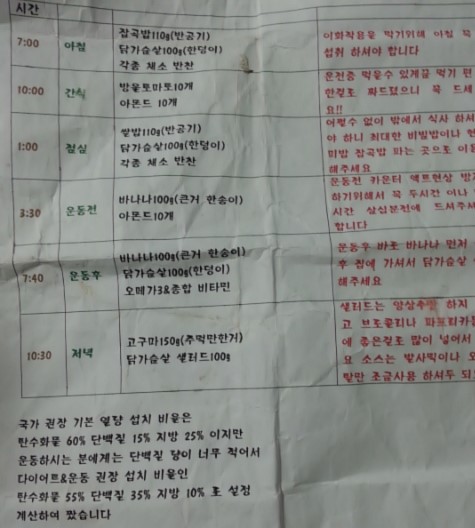 시간
7:00
아침
잡곡밥110g(반공기)
닭가슴살100g(한덩이)
각종 채소 반찬
이화작용을 막기위해 아침 꼭
섭취 하셔야 합니다
10:00
간식
방울토마토10개
아몬드 10개
운전중 먹을수 있게끔 먹기 편
한걸로 짜드렸으니 꼭 드세
요!!
1:00
점심
쌀밥110g(반공기)
닭가슴살100g(한덩이)
각종 채소 반찬
어쩔수 없이 밖에서 식사 하셔
야 하니 최대한 비빔밥이나
미밥 잡곡밥 파는 곳으로
해주세요
3:30
운동전
바나나100g(큰거 한송이)
아몬드10개
운동전 카운터 액트현상
하기위해서 꼭 두시간 이나
시간 삼십분전에 드셔주셔
합니다
7:40
운동후
바나나100g(큰거 한송이)
닭가슴살100g(한덩이)
오메가3&종합 비타민
운동후 바로 바나나 먼저
후 집에 가셔서 닭가슴살
해주세요
10:30
저녁
고구마150g(주먹만한거)
닭가슴살 샐러드100g
샐러드는 양상추만 하지
고 브로콜리나 파프리카등
에 좋은걸로 많이 넣어서
요 소스는 발사믹이나 오
일만 조금사용 하셔두 되
국가 권장 기본 열량 섭치 비율은
탄수화물 60% 단백질 15% 지방 25% 이지만
운동하시는 분에게는 단백질 양이 너무 적어서
다이어트&운동 권장 섭치 비율인
탄수화물 55% 단백질 35% 지방 10% 로 설정
계산하여 짰습니다